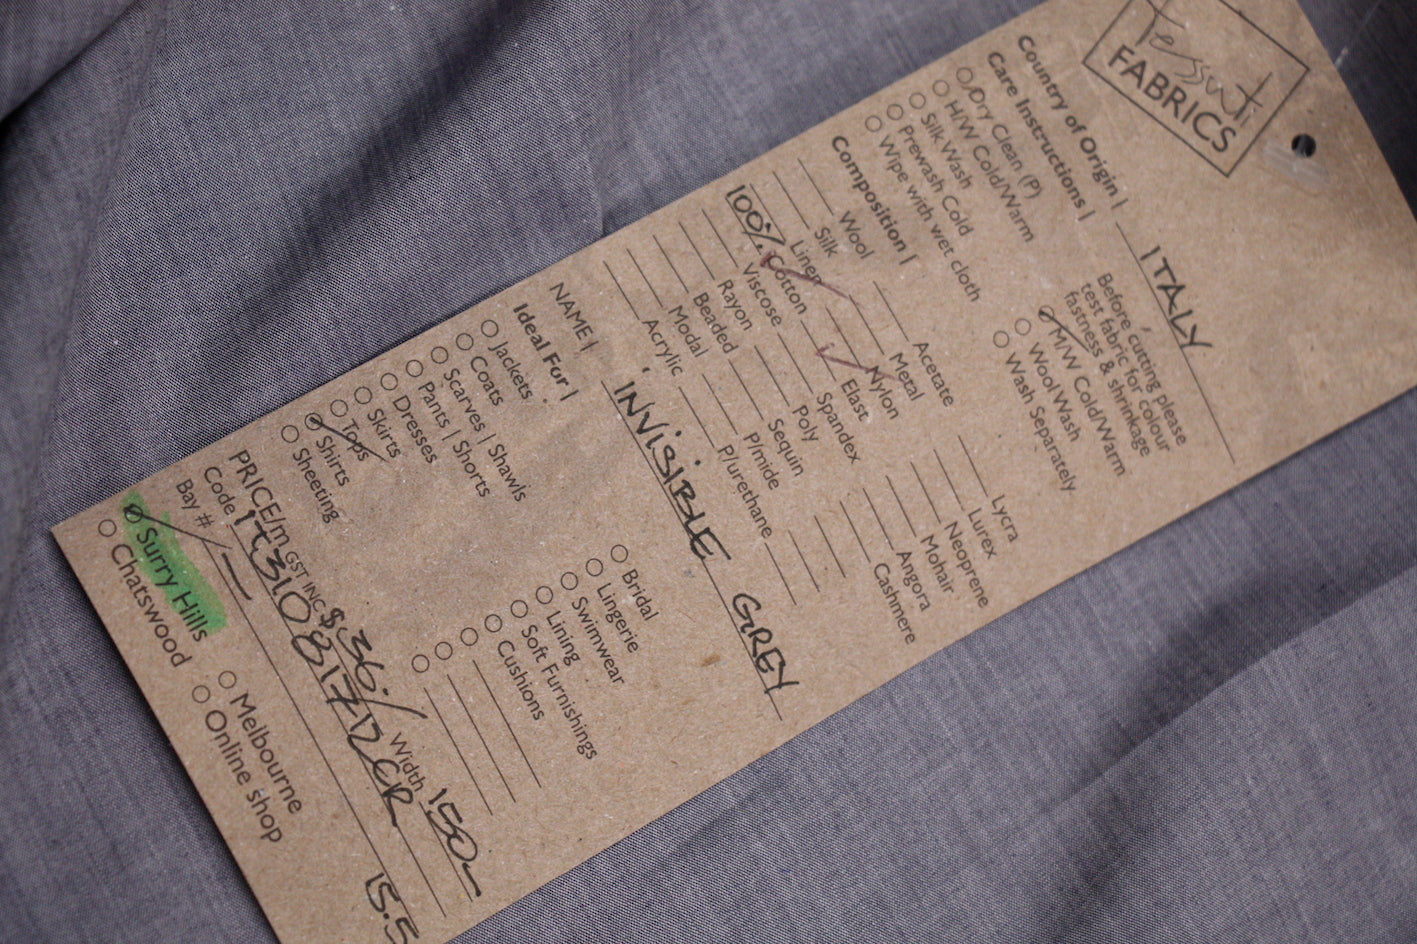 Tessuti
FABRICS
Country of Origin | ITALY
Care Instructions |
Dry Clean (P)
H/W Cold/Warm
Silk Wash
Prewash Cold
Wipe with wet cloth
Before cutting please
test fabric for colour
fastness & shrinkage
M/W Cold/Warm
Wool Wash
Wash Separately
Composition |
Wool
Silk
Linen
100% Cotton
Viscose
Rayon
Beaded
Modal
Acrylic
Acetate
Metal
Nylon
Elast
Spandex
Poly
Sequin
P/mide
P/urethane
Lycra
Lurex
Neoprene
Mohair
Angora
Cashmere
NAME | INVISIBLE GREY
Ideal For |
Jackets
Coats
Scarves | Shawls
Pants | Shorts
Dresses
Skirts
Tops
Shirts
Sheeting
Bridal
Lingerie
Swimwear
Lining
Soft Furnishings
Cushions
PRICE/m GST INC $36 Width 150
Code
Bay #
Surry Hills
Chatswood
Melbourne
Online shop
15.5